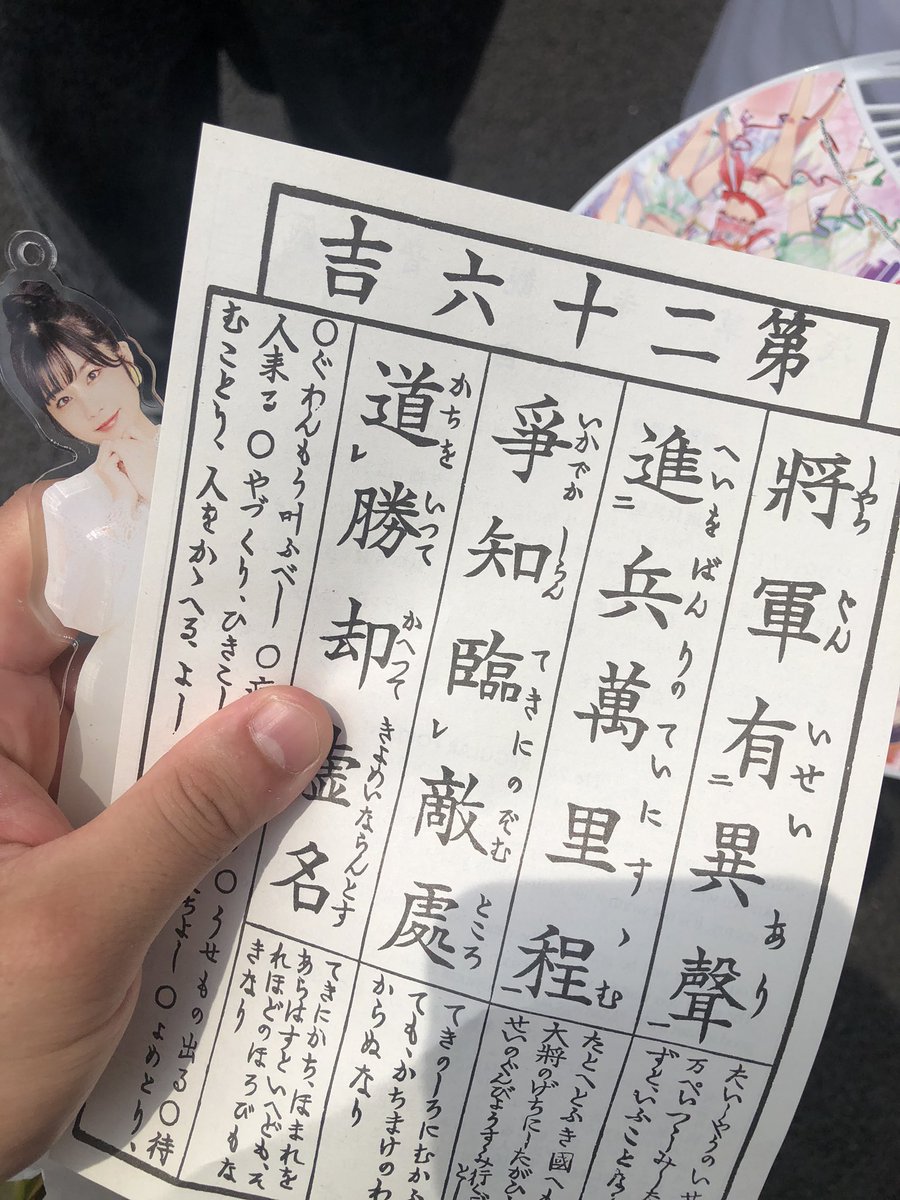 第二十六吉
將軍有二異聲一
しやうぐん いせい あり
進二兵萬里程一
へいをばんりのていにすゝむ
爭知臨レ敵處
いかでか しらん てきにのぞむ ところ
道レ勝却虚名
かちを いつて かへつて きよめいならんとす
たいしやうのいせ
ずといふこと
たとへとふき國へも
大將のげちにしたがひ
てきのしろにむかふ
ても、かちまけのわ
からぬなり
てきにかち、ほまれを
あらはすといへども、そ
れほどのほろびもな
きなり
〇ぐわんもう叶ふべし 〇 〇うせもの出る〇待
人来る 〇やづくり、ひきこし よし〇よめとり、
むことり、人をかゝへる、よし